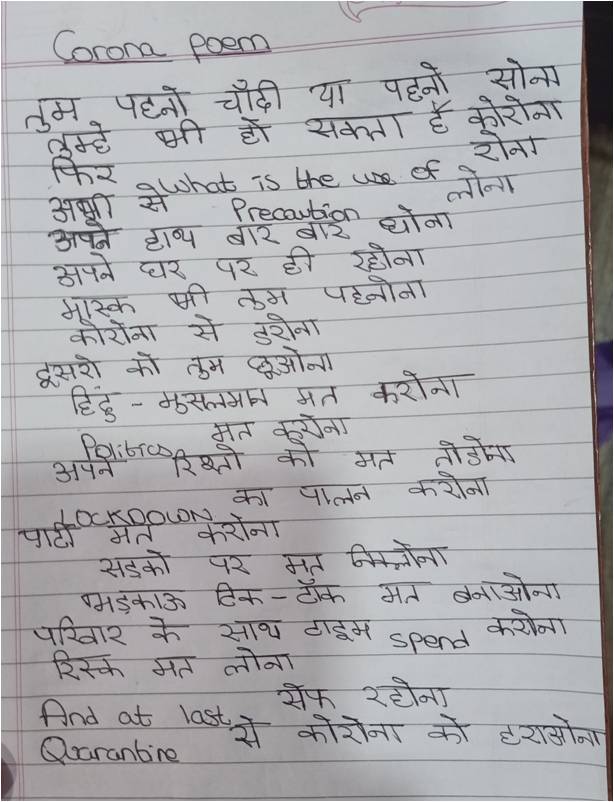 Corona poem
तुम पहनो चाँदी या पहनो सोना
तुम्हे भी हो सकता है कोरोना
फिर what is the use of रोना
अभी से Precaution लोना
अपने हाथ बार बार धोना
अपने घर पर ही रहोना
मास्क भी तुम पहनोना
कोरोना से डरोना
दूसरो को तुम छूओना
हिंदु - मुसलमान मत करोना
Politics मत करोना
अपने रिश्तो को मत तोडोना
LOCKDOWN का पालन करोना
पार्टी मत करोना
सड़को पर मत निकलोना
भड़काऊ टिक - टॉक मत बनाओना
परिवार के साथ टाइम spend करोना
रिस्क मत लोना
सेफ रहोना
And at last
Quarantine से कोरोना को हराओना